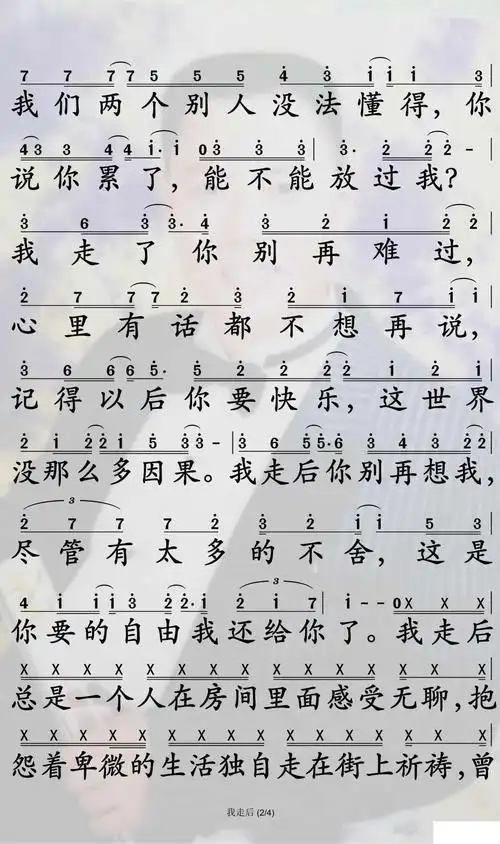 7 7 7 7 5 5 5 4 3 i i i 3
我们两个别人没法懂得，你
4 3 3 3 4 4 i· i 0 3 3 3 3· 2 2 2 -
说你累了，能不能放过我？
3 6 3 3· 4 3 2 i 2 2
我走了你别再难过，
2 7 7 7 2 3 2 i 7 i i
心里有话都不想再说，
3 6 6 6 5· 5 2 2 2 2 i 2 3
记得以后你要快乐，这世界
2 i 2 2 i 5 3 3 - 3 6 5 5· 6 3 4 3 2 2
没那么多因果。我走后你别再想我，
3
2 7 7 7 2 3 2 i i 5 3
尽管有太多的不舍，这是
3
4 i i i 3 2 2· i 2 i 7 i - - 0 X X X
你要的自由我还给你了。我走后
X X X X X X X X X X X X X X
总是一个人在房间里面感受无聊，抱
X X X X X X X X X X X X X X X
怨着卑微的生活独自走在街上祈祷，曾
我走后 (2/4)